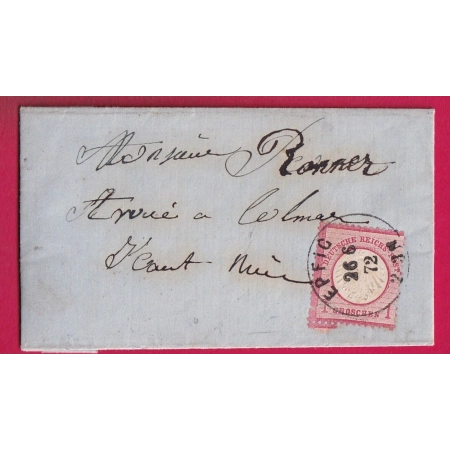 Monsieur Ronner
Avoué a Colmar
Haut Rhin
EPFIG
26 6
72
2-N
DEUTSCHE REICHS-POST
1 GROSCHEN 1